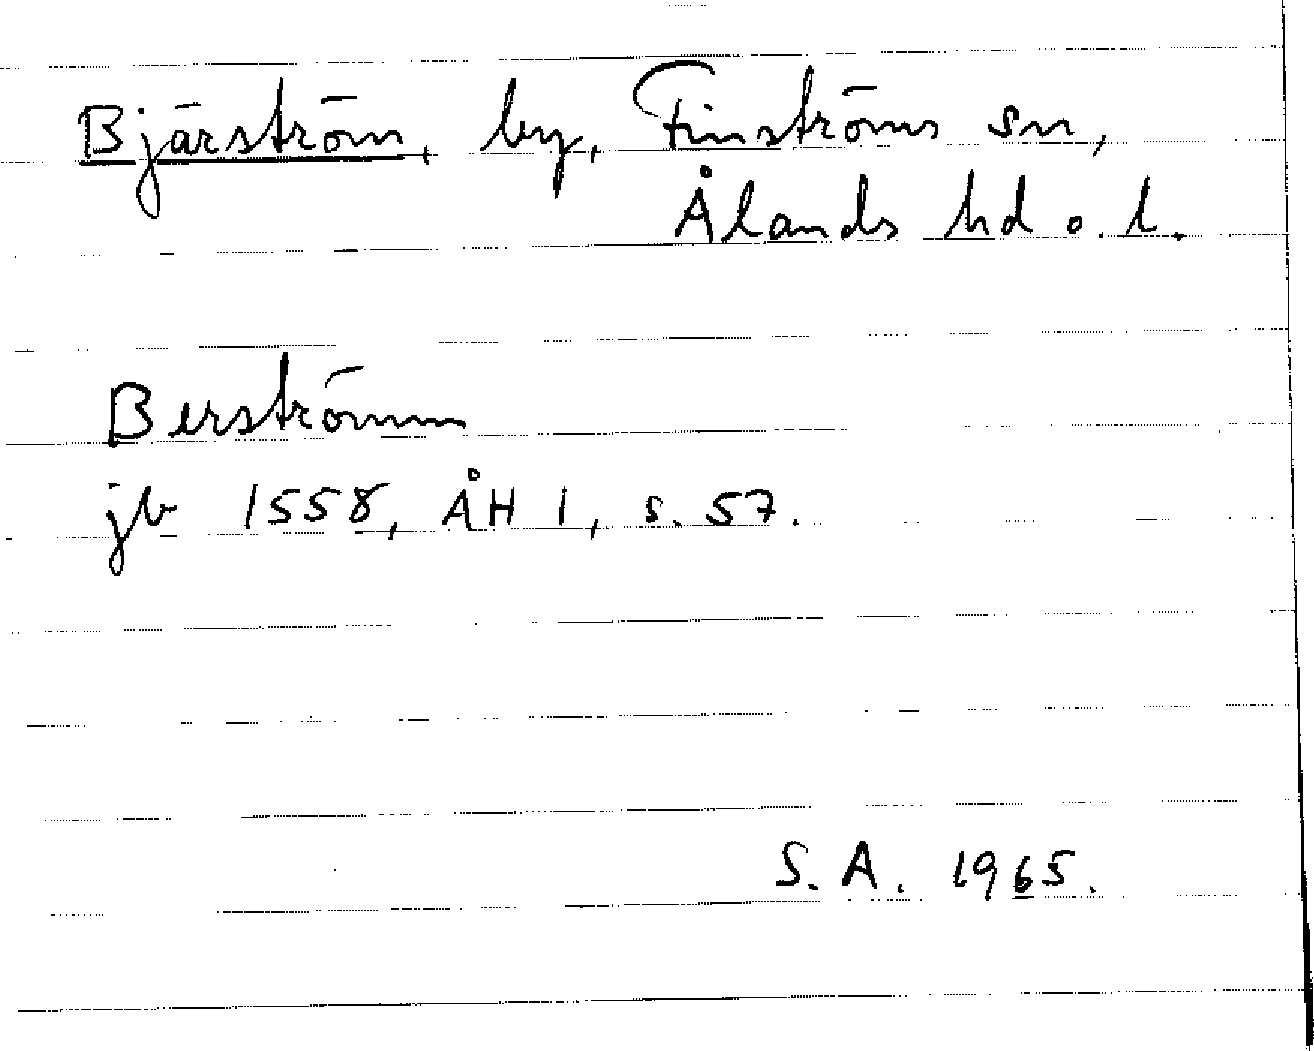 Bjärström, by, Finströms sn,
Ålands hd o. l.
Berströmm
jb 1558, ÅH 1, s. 57.
S. A. 1965.